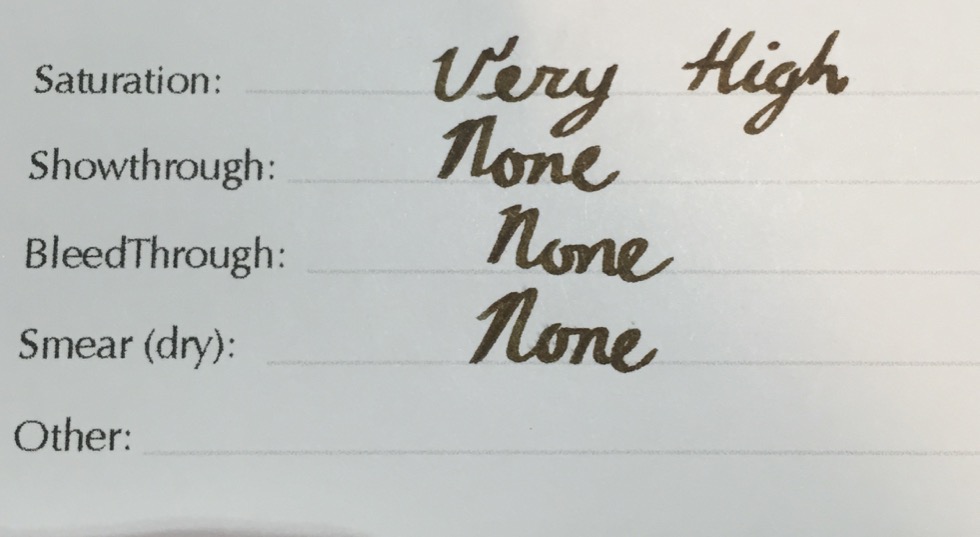 Saturation: Very High
Showthrough: None
BleedThrough: None
Smear (dry): None
Other: